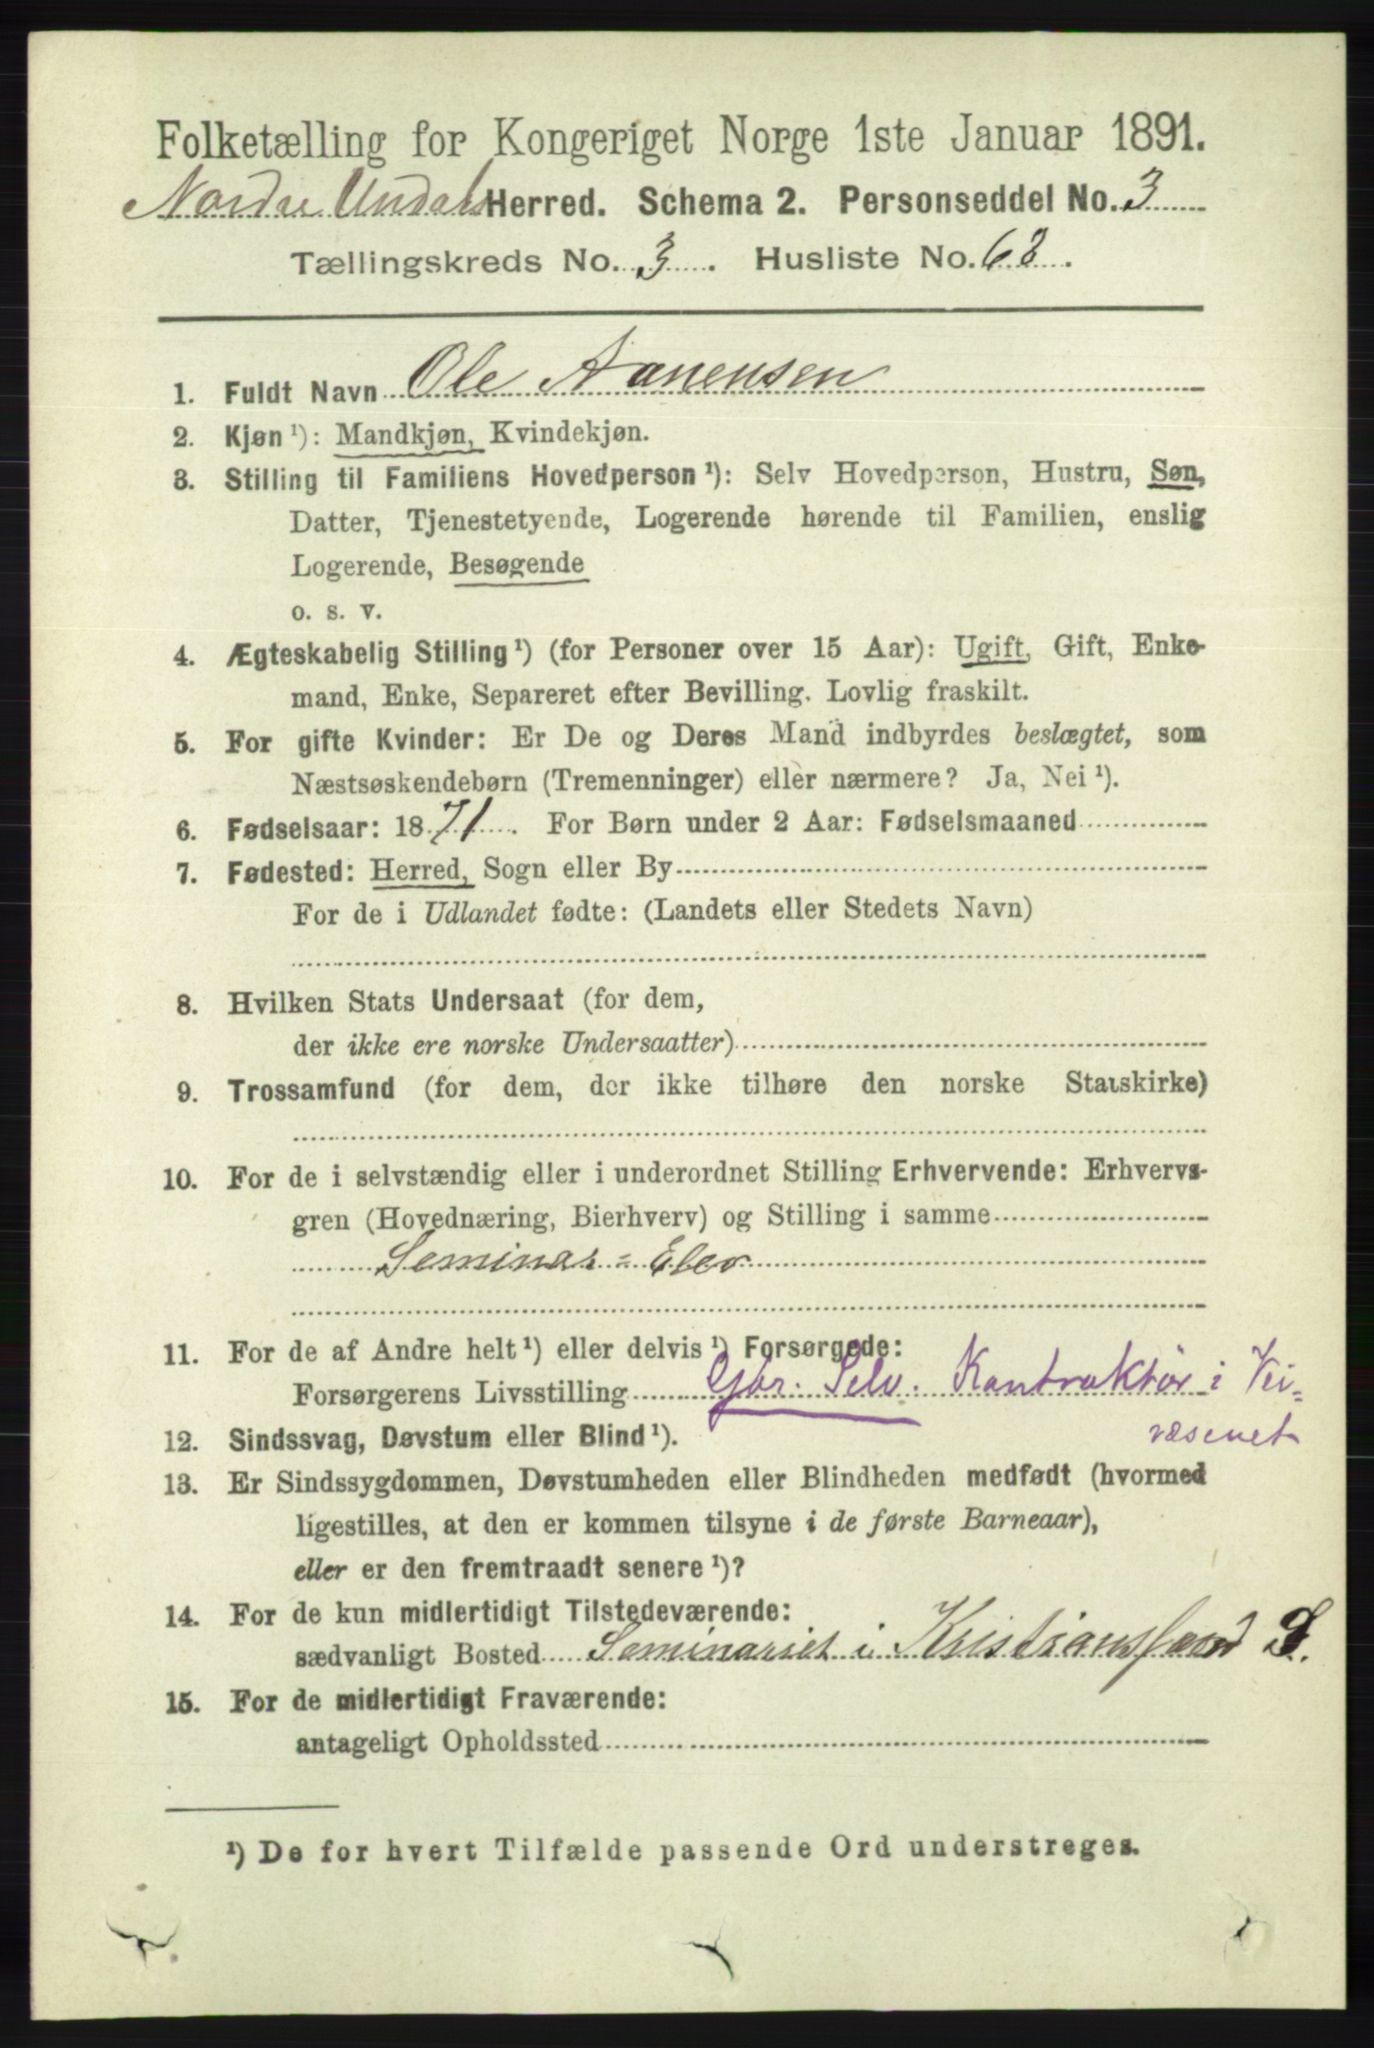 Folketælling for Kongeriget Norge 1ste Januar 1891.
Nordre Undals Herred. Schema 2. Personseddel No. 3
Tællingskreds No. 3. Husliste No. 63.
1. Fuldt Navn Ole Aanensen
2. Kjøn ¹): Mandkjøn, Kvindekjøn.
3. Stilling til Familiens Hovedperson ¹): Selv Hovedperson, Hustru, Søn,
Datter, Tjenestetyende, Logerende hørende til Familien, enslig
Logerende, Besøgende
o. s. v.
4. Ægteskabelig Stilling ¹) (for Personer over 15 Aar): Ugift, Gift, Enke-
mand, Enke, Separeret efter Bevilling. Lovlig fraskilt.
5. For gifte Kvinder: Er De og Deres Mand indbyrdes beslægtet, som
Næstsøskendebørn (Tremenninger) eller nærmere? Ja, Nei ¹).
6. Fødselsaar: 1871. For Børn under 2 Aar: Fødselsmaaned
7. Fødested: Herred, Sogn eller By
For de i Udlandet fødte: (Landets eller Stedets Navn)
8. Hvilken Stats Undersaat (for dem,
der ikke ere norske Undersaatter)
9. Trossamfund (for dem, der ikke tilhøre den norske Statskirke)
10. For de i selvstændig eller i underordnet Stilling Erhvervende: Erhvervs-
gren (Hovednæring, Bierhverv) og Stilling i samme
Seminar-Elev
11. For de af Andre helt ¹) eller delvis ¹) Forsørgede:
Forsørgerens Livsstilling Gbr. Selv. Kontraktør i Vei-
væsenet
12. Sindssvag, Døvstum eller Blind ¹).
13. Er Sindssygdommen, Døvstumheden eller Blindheden medfødt (hvormed
ligestilles, at den er kommen tilsyne i de første Barneaar),
eller er den fremtraadt senere ¹)?
14. For de kun midlertidigt Tilstedeværende:
sædvanligt Bosted Seminariet i Kristianssand S.
15. For de midlertidigt Fraværende:
antageligt Opholdssted
¹) De for hvert Tilfælde passende Ord understreges.